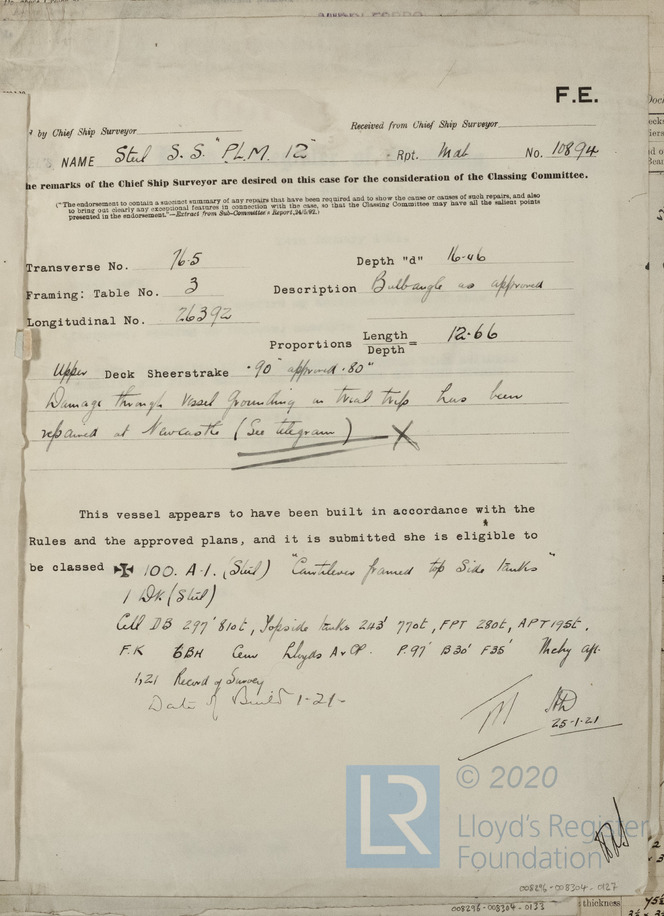 F.E.
by Chief Ship Surveyor
Received from Chief Ship Surveyor
NAME Steel S.S. "P.L.M. 12" Rpt. Mdb No. 10894
he remarks of the Chief Ship Surveyor are desired on this case for the consideration of the Classing Committee.
("The endorsement to contain a succinct summary of any repairs that have been required and to show the cause or causes of such repairs, and also
to bring out clearly any exceptional features in connection with the case, so that the Classing Committee may have all the salient points
presented in the endorsement."—Extract from Sub-Committee's Report, 24/5/92.)
Transverse No. 76.5 Depth "d" 16.46
Framing: Table No. 3 Description Bulbangle as approved
Longitudinal No. 26392
Proportions Length/Depth = 12.66
Upper Deck Sheerstrake .90" approved .80"
Damage through vessel grounding on trial trip has been
repaired at Newcastle (See telegram) X
This vessel appears to have been built in accordance with the
Rules and the approved plans, and it is submitted she is eligible to
be classed ✠ 100. A.1. (Steel) "Cantilever framed top side tanks"
1 Dk (Steel)
Cell DB 297' 810t, Topside tanks 243' 770t, FPT 280t, APT 195t.
F.K 6BH Cem Lloyds A&CP. P.97' B30' F35' Mchy aft.
1,21 Record of Survey
Date of Build 1-21-
25-1-21
LR
© 2020
Lloyd's Register
Foundation
008296-008304-0127
008296-008304-0133
thickness